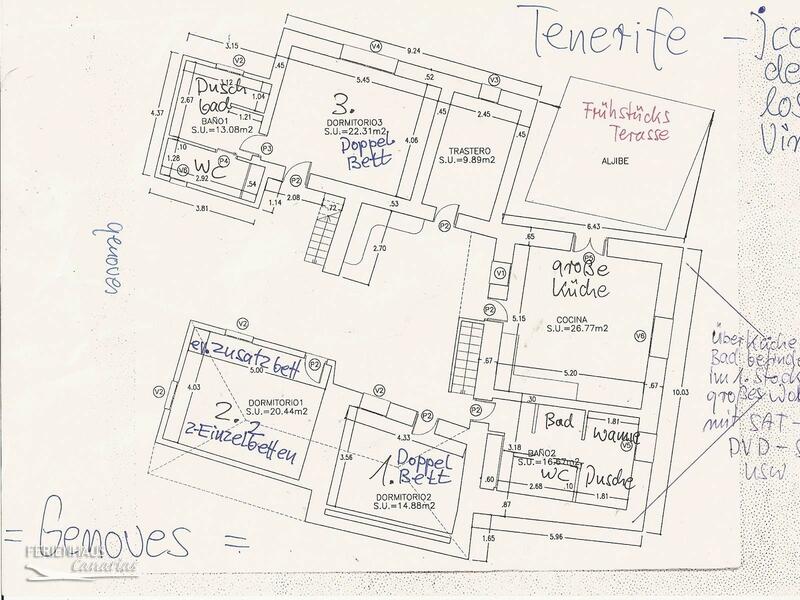 Tenerife - Ico
de
los
Vin
3.15
9.24
V4
V2
.45
5.45
.52
V3
3.12
1.04
Dusch
bad
2.67
.45
3.
.45
2.45
.45
4.37
1.21
BAÑO1
S.U.=13.08m2
DORMITORIO3
S.U.=22.31m2
Doppel
Bett
4.06
TRASTERO
S.U.=9.89m2
Frühstücks
Terasse
ALJIBE
.10
P3
1.28
P4
WC
V6
2.92
.54
P2
2.08
1.14
.72
.53
3.81
P2
2.70
.65
6.43
P5
große
Küche
V1
genoves
P2
5.15
COCINA
S.U.=26.77m2
V6
V2
ev. zusatzbett
5.00
P2
.67
5.20
.67
10.03
überKüche
Bad befinde
im 1. Stock
großes Woh
mit SAT-
DVD-S
usw
V2
4.03
DORMITORIO1
S.U.=20.44m2
2.
2-Einzelbetten
V2
P2
P2
.30
4.33
Bad
1.81
Wanne
V5
3.56
1.
Doppel
Bett
3.18
BAÑO2
S.U.=16.67m2
WC
Dusche
.60
2.68
.10
1.81
DORMITORIO2
S.U.=14.88m2
.87
1.65
5.96
= Genoves =
FERIENHAUS
Canarias